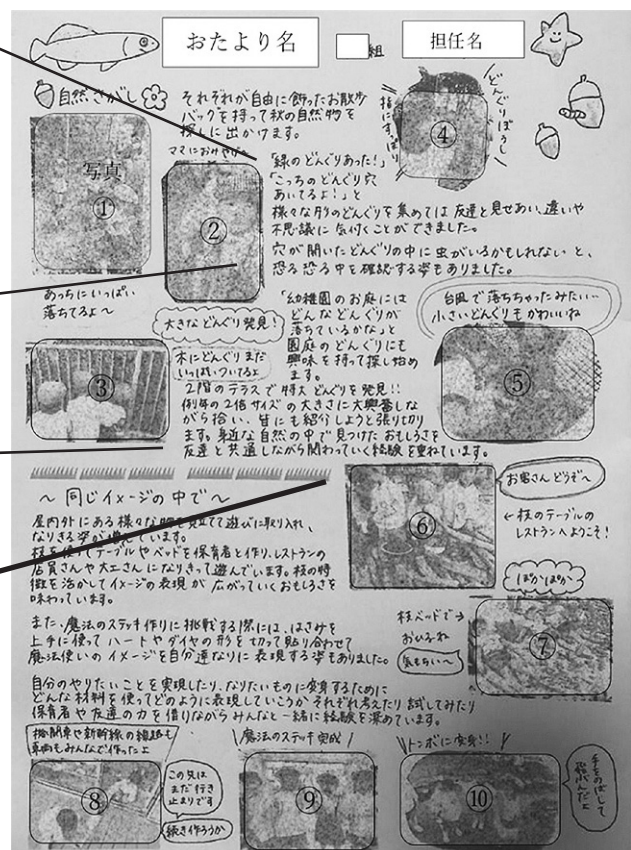 おたより名
組
担任名
自然さがし
それぞれが自由に飾ったお散歩
バッグを持って秋の自然物を
探しに出かけます。
どんぐりぼうし
指にすっぽり
④
写真
①
ママにおみやげ
②
「緑のどんぐりあった!」
「こっちのどんぐり穴
あいてるよ!」と
様々な形のどんぐりを集めては友達と見せあい、違いや
不思議に気付くことができました。
穴が開いたどんぐりの中に虫がいるかもしれないと、
恐る恐る中を確認する姿もありました。
あっちにいっぱい
落ちてるよ〜
大きなどんぐり発見!
「幼稚園のお庭には
どんなどんぐりが
落ちているかな」と
園庭のどんぐりにも
興味を持って探し始め
ます。
台風で落ちちゃったみたい…
小さいどんぐりもかわいいね
③
木にどんぐりまだ
いっぱいついてるよ
⑤
2階のテラスで特大どんぐりを発見!!
例年の2倍サイズの大きさに大興奮しな
がら拾い、皆にも紹介しようと張り切り
ます。身近な自然の中で見つけたおもしろさを
友達と共通しながら関わっていく経験を重ねています。
〜同じイメージの中で〜
屋内外にある様々な物を見立てて遊びに取り入れ、
なりきる姿が増えています。
枝を使ってテーブルやベッドを保育者と作り、レストランの
店員さんや大工さんになりきって遊んでいます。枝の特
徴を活かしてイメージの表現が広がっていくおもしろさを
味わっています。
⑥
お客さんどうぞ〜
←枝のテーブルの
レストランへようこそ!
ぽかぽか〜
また、魔法のステッキ作りに挑戦する際には、はさみを
上手に使ってハートやダイヤの形を切って貼り合わせて
魔法使いのイメージを自分達なりに表現する姿もありました。
枝ベッドで→
おひるね
気もちい〜
⑦
自分のやりたいことを実現したり、なりたいものに変身するために
どんな材料を使ってどのように表現していこうかそれぞれ考えたり試してみたり
保育者や友達の力を借りながらみんなと一緒に経験を深めています。
機関車や新幹線の線路も
車両もみんなで作ったよ
⑧
この先は
まだ行き
止まりです
続き作ろうか
魔法のステッキ完成
⑨
トンボに変身!!
⑩
手をのばして
飛ぶんだよ